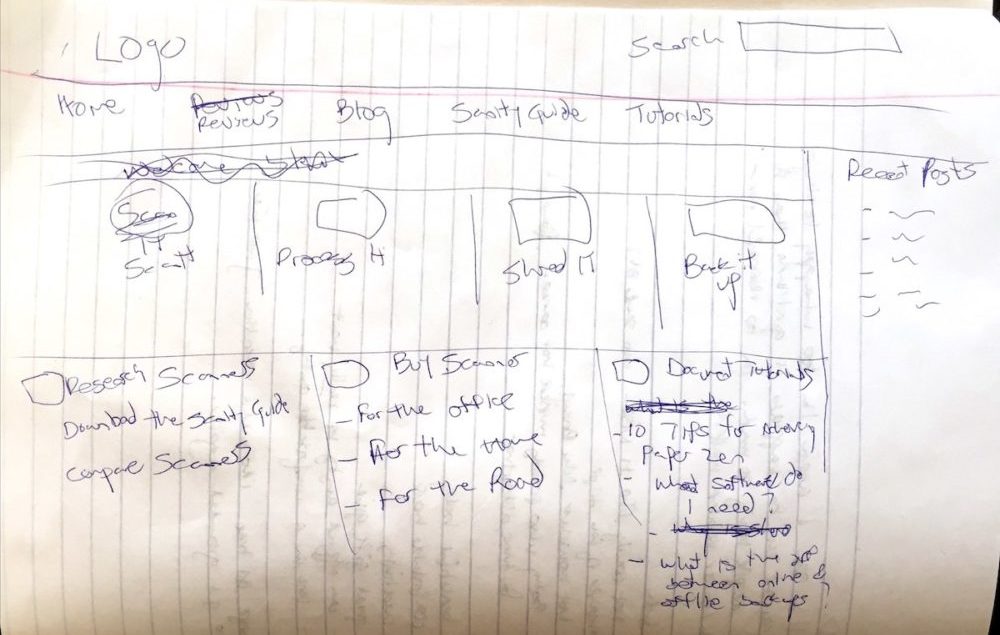 Logo
Search
Home
Reviews
Reviews
Blog
Scanity Guide
Tutorials
Recent Posts
Scan
IT
Scan It
Process It
Shred IT
Back it
up
Research Scanners
Download the Scanity Guide
Compare Scanners
Buy Scanner
- For the office
- For the Home
- For the Road
Document Tutorials
what is the
- 10 Tips for
Paper Zen
- what software do
I need?
- what is the
between online &
offline backups?